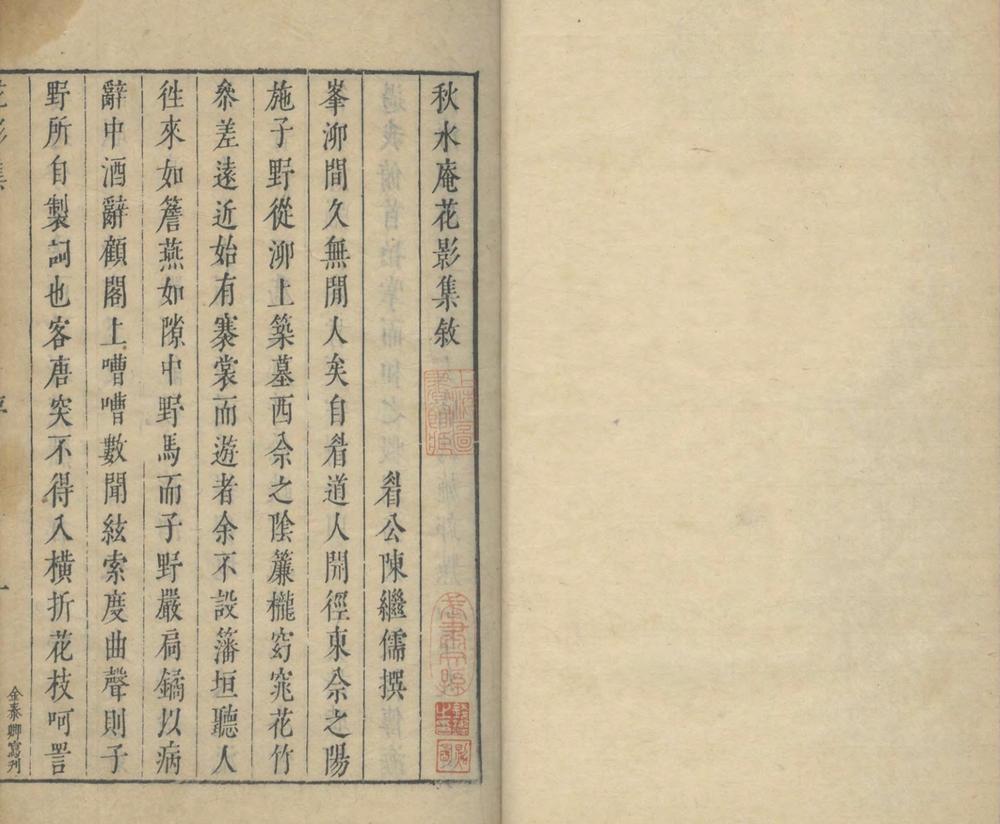 秋水庵花影集敘
眉公陳繼儒撰
峯泖間久無閒人矣自眉道人開徑東佘之陽
施子野從泖上築墓西佘之陰簾櫳窈窕花竹
叅差遠近始有褰裳而遊者余不設籓垣聽人
徃來如簷燕如隙中野馬而子野嚴扃鐍以病
辭中酒辭顧閣上嘈嘈數聞絃索度曲聲則子
野所自製詞也客唐突不得入橫折花枝呵詈
金泰卿寫刊
花影集
一